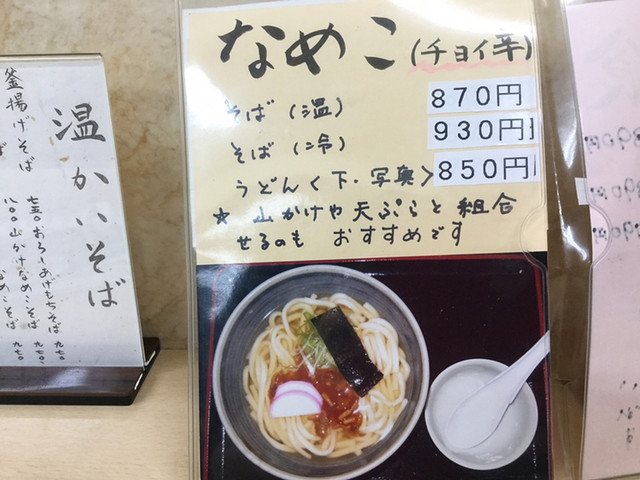 なめこ(チョイ辛)
そば(温) 870円
そば(冷) 930円
うどん<下・写真> 850円
★山かけや天ぷらと組合
せるのも おすすめです
温かいそば
釜揚げそば
七五〇
おろしあげもちそば 九七〇
八〇〇
山かけなめこそば 九七〇